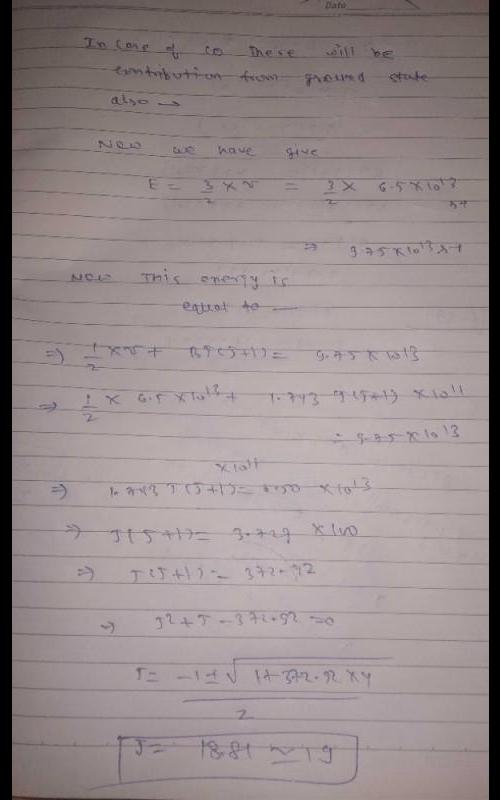 Date
In case of CO there will be
contribution from ground state
also →
Now we have give
E = 3/2 × ν = 3/2 × 6.5 × 10^13 s-1
⇒ 9.75 × 10^13 s-1
Now This energy is
equal to —
⇒ 1/2 × ν + BJ(J+1) = 9.75 × 10^13
⇒ 1/2 × 6.5 × 10^13 + 1.743 J(J+1) × 10^11
= 9.75 × 10^13
⇒ 1.743 J(J+1) × 10^11 = 6.50 × 10^13
⇒ J(J+1) = 3.729 × 100
⇒ J(J+1) = 372.92
⇒ J2 + J - 372.92 = 0
J = -1 ± √1+372.92 × 4 / 2
J = 18.81 ≃ 19